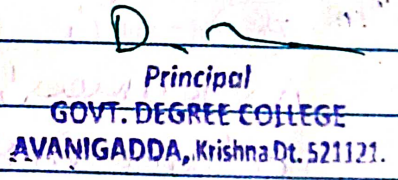 Principal
GOVT. DEGREE COLLEGE
AVANIGADDA, Krishna Dt. 521121.